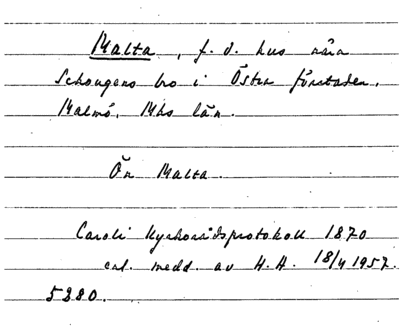 Malta, f. d. hus nära
Schougens bro i Öster förstaden,
Malmö, Mhs län.
Ön Malta.
Caroli Kyrkorådsprotokoll 1870
enl. medd. av H. H. 18/4 1957.
5280.